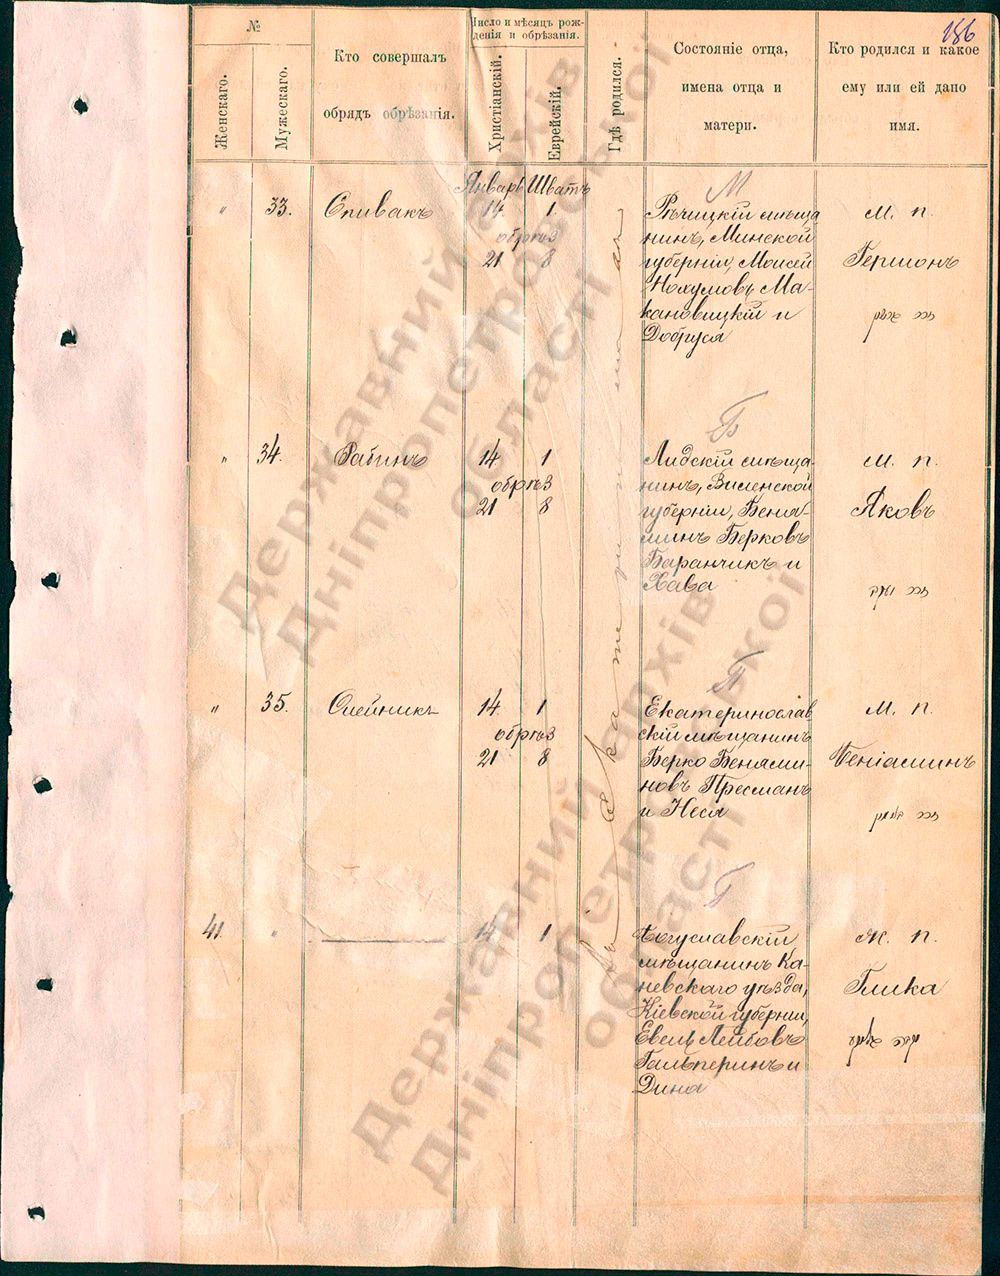 186
№
Женскаго.
Мужескаго.
Кто совершалъ
обрядъ обрѣзанія.
Число и мѣсяцъ рож-
денія и обрѣзанія.
Христіанскій.
Еврейскій.
Гдѣ родился.
Состояніе отца,
имена отца и
матери.
Кто родился и какое
ему или ей дано
имя.
Январь Шватъ
М
" 33. Спивакъ 14 1
обрѣз
21 8
Рѣчицкій мѣща
нинъ, Минской
губерніи, Моисей
Нохумовъ Ма-
кановицкій и
Добруся
м. п.
Гершонъ
זכר גרשון
Б
" 34. Рабинъ 14 1
обрѣз
21 8
Лидскій мѣща-
нинъ, Виленской
губерніи, Бенja-
минъ Берковъ
Баранчикъ и
Хава
м. п.
Яковъ
זכר יעקב
П
" 35. Олейникъ 14 1
обрѣз
21 8
Екатеринослав
скій мѣщанинъ
Берко Бенями-
новъ Пресманъ
и Неся
м. п.
Беніаминъ
זכר בנימין
Г
41. " 14 1
Богуславскій
мѣщанинъ Ка-
невскаго уѣзда,
Кіевской губерніи,
Евель Лейбовъ
Гальперинъ и
Дина
ж. п.
Глика
Въ Екатеринославѣ
Державний архів
Дніпропетровської
області
Державний архів
Дніпропетровської
області